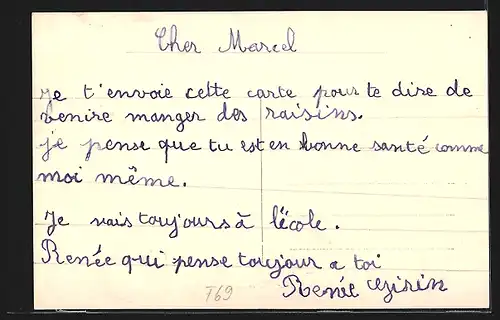 Cher Marcel
Je t'envoie cette carte pour te dire de
venire manger des raisins.
je pense que tu est en bonne santé comme
moi même.
Je vais toujours à l'école.
Renée qui pense toujour a toi
Renée Girin
T69